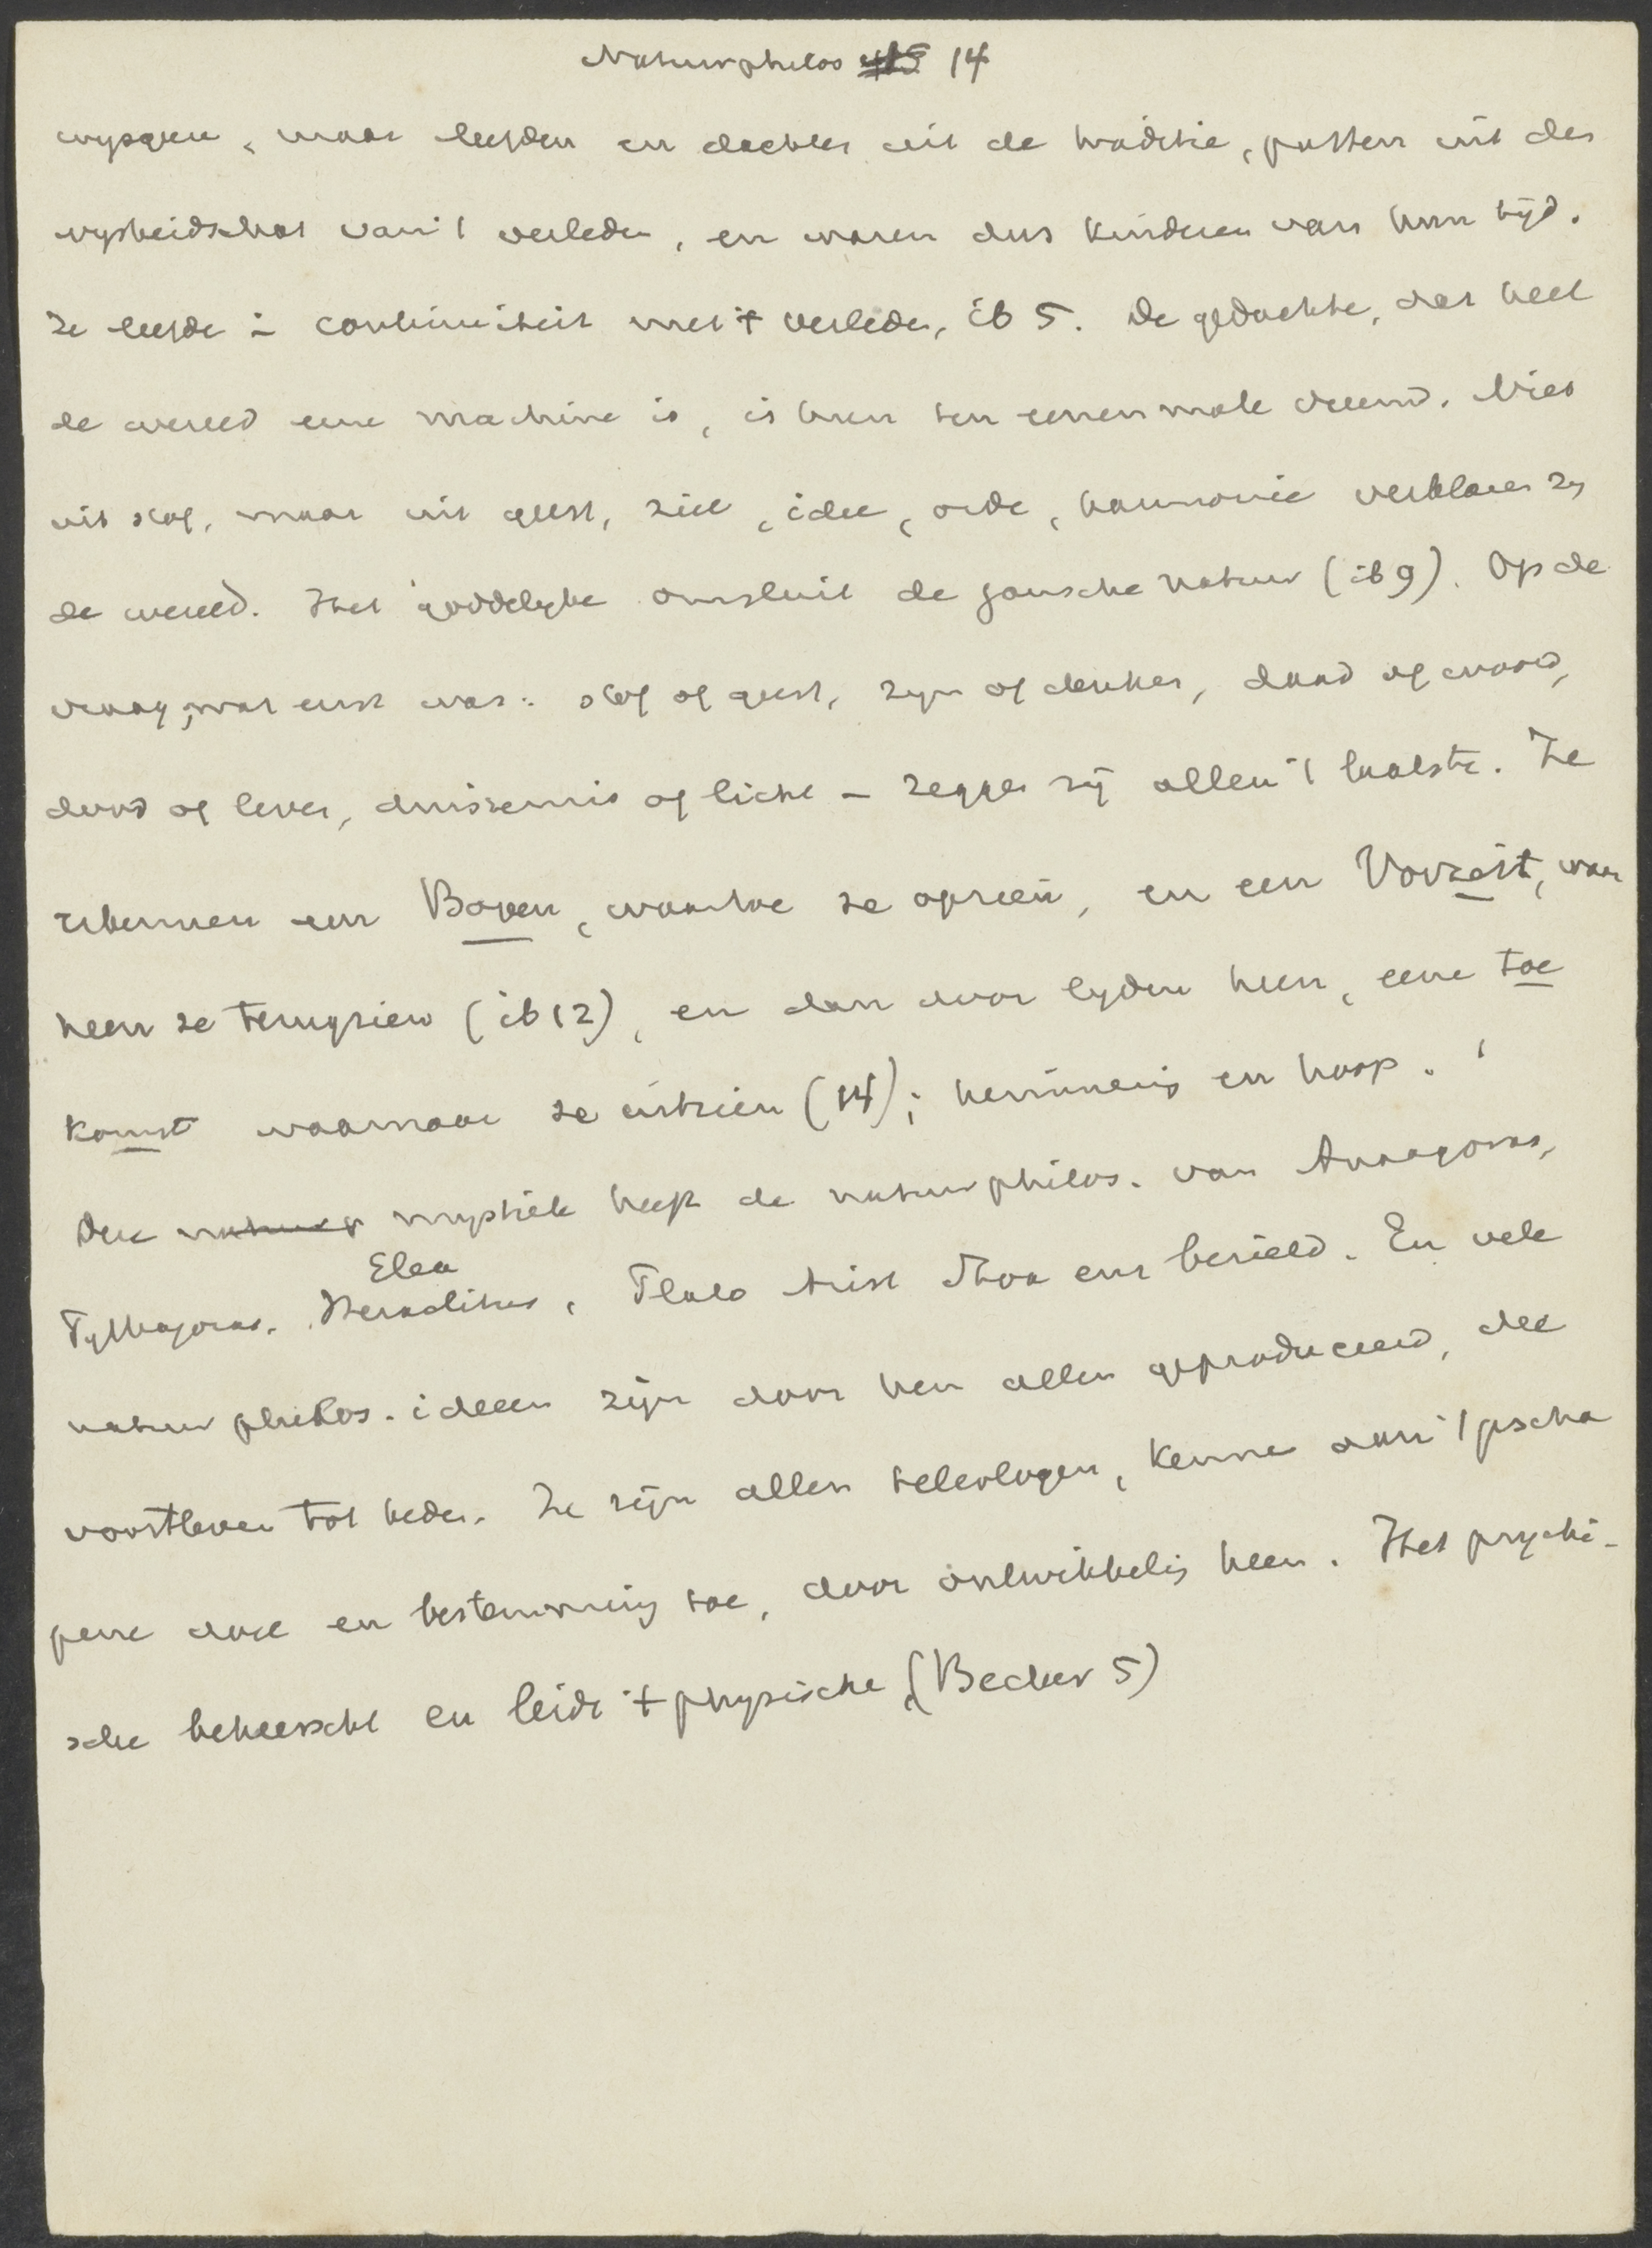 Naturphilos 14
wijsgeeren, maar leefden en dachten uit de traditie, putten uit den
wysheidschat van 't verleden, en waren dus kinderen van hun tijd.
Ze leefde in continuiteit met 't verleden, ib 5. De gedachte, dat heel
de wereld eene machine is, is hun ten eenenmale vreemd. Niet
uit stof, maar uit geest, ziel, idee, orde, harmonie verklaren zy
de wereld. Het goddelyke omsluit de gansche natuur (ib 9). Op de
vraag, wat eerst was: stof of geest, zyn of denken, daad of woord,
dood of leven, duisternis of licht - zeggen zij allen 't laatste. Ze
erkennen een Boven, waartoe ze opzien, en een Vorzeit, waar
heen ze terugzien (ib 12), en dan door lyden heen, eene toe
komst waarnaar ze uitzien (14); herinnering en hoop.
Deze natuur mystiek heeft de natuurphilos. van Anaxagoras,
Elea
Pythagoras, Heraclitus, Plato Arist Stoa enz bezield. En vele
natuurphilos. ideeen zijn door hen allen geproduceerd, die
voortleven tot heden. Ze zijn allen teleologen, kennen aan 't gescha
pene doel en bestemming toe, door ontwikkeling heen. Het psychi-
sche beheerscht en leidt 't physische (Becher 5)